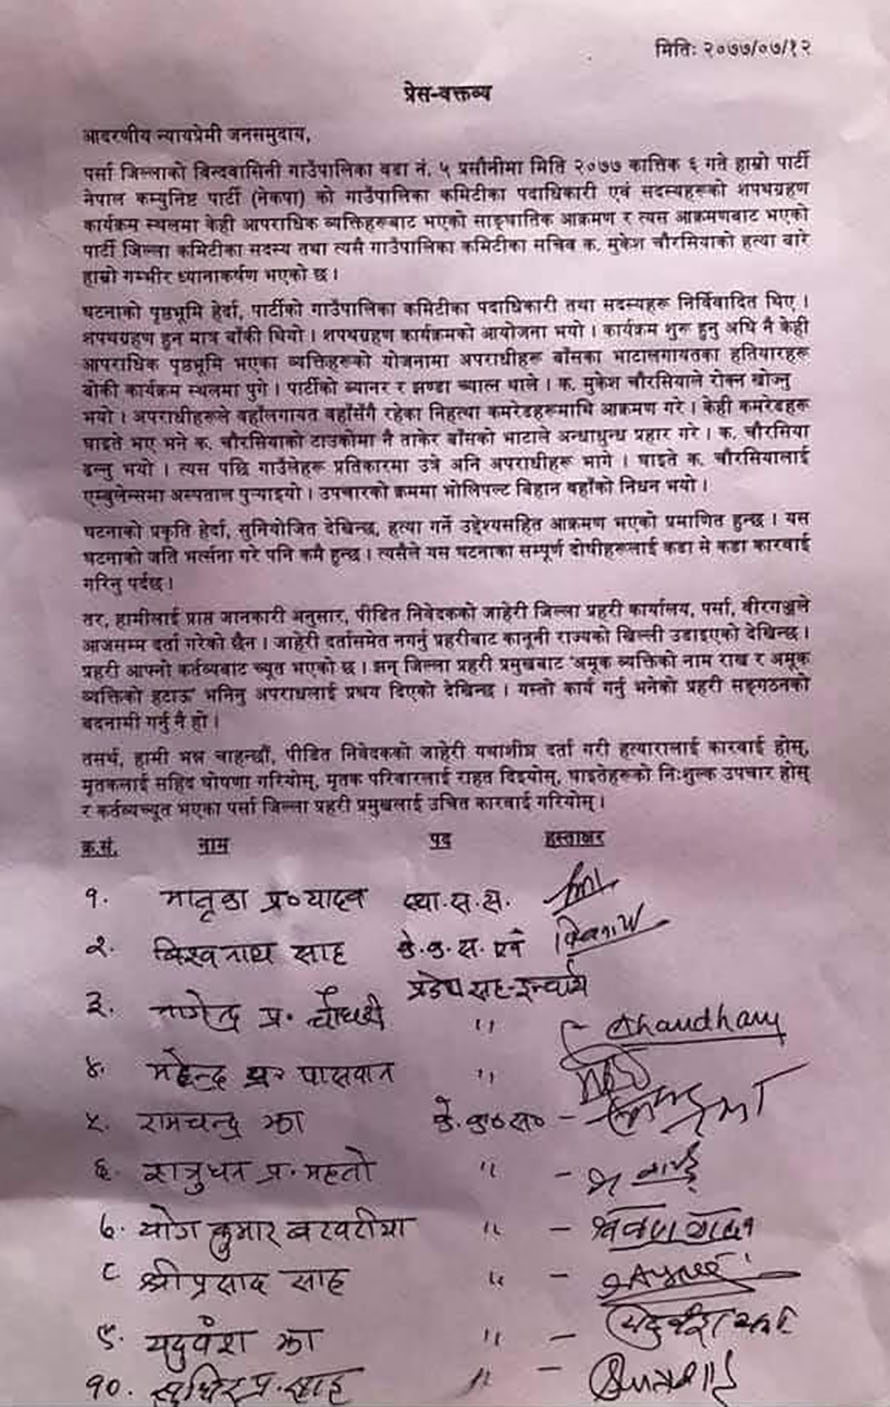 मितिः २०७७/०७/१२
प्रेस-वक्तव्य
आदरणीय न्यायप्रेमी जनसमुदाय,
पर्सा जिल्लाको बिन्दवासिनी गाउँपालिका वडा नं. ५ प्रसौनीमा मिति २०७७ कात्तिक ६ गते हाम्रो पार्टी
नेपाल कम्युनिष्ट पार्टी (नेकपा) को गाउँपालिका कमिटीका पदाधिकारी एवं सदस्यहरूको शपथग्रहण
कार्यक्रम स्थलमा केही आपराधिक व्यक्तिहरूबाट भएको साङ्घातिक आक्रमण र त्यस आक्रमणबाट भएको
पार्टी जिल्ला कमिटीका सदस्य तथा त्यसै गाउँपालिका कमिटीका सचिव क. मुकेश चौरसियाको हत्या बारे
हाम्रो गम्भीर ध्यानाकर्षण भएको छ ।
घटनाको पृष्ठभूमि हेर्दा, पार्टीको गाउँपालिका कमिटीका पदाधिकारी तथा सदस्यहरू निर्विवादित थिए ।
शपथग्रहण हुन मात्र बाँकी थियो । शपथग्रहण कार्यक्रमको आयोजना भयो । कार्यक्रम शुरू हुनु अघि नै केही
आपराधिक पृष्ठभूमि भएका व्यक्तिहरूको योजनामा अपराधीहरू बाँसका भाटालगायतका हतियारहरू
बोकी कार्यक्रम स्थलमा पुगे । पार्टीको ब्यानर र झण्डा च्यात्न थाले । क. मुकेश चौरसियाले रोक्न खोज्नु
भयो । अपराधीहरूले वहाँलगायत वहाँसँगै रहेका निहत्था कमरेडहरूमाथि आक्रमण गरे । केही कमरेडहरू
घाइते भए भने क. चौरसियाको टाउकोमा नै ताकेर बाँसको भाटाले अन्धाधुन्ध प्रहार गरे । क. चौरसिया
ढल्नु भयो । त्यस पछि गाउँलेहरू प्रतिकारमा उत्रे अनि अपराधीहरू भागे । घाइते क. चौरसियालाई
एम्बुलेन्समा अस्पताल पुर्‍याइयो । उपचारको क्रममा भोलिपल्ट बिहान वहाँको निधन भयो ।
घटनाको प्रकृति हेर्दा, सुनियोजित देखिन्छ, हत्या गर्ने उद्देश्यसहित आक्रमण भएको प्रमाणित हुन्छ । यस
घटनाको जति भर्त्सना गरे पनि कमै हुन्छ । त्यसैले यस घटनाका सम्पूर्ण दोषीहरूलाई कडा से कडा कारवाई
गरिनु पर्दछ ।
तर, हामीलाई प्राप्त जानकारी अनुसार, पीडित निवेदकको जाहेरी जिल्ला प्रहरी कार्यालय, पर्सा, वीरगञ्जले
आजसम्म दर्ता गरेको छैन । जाहेरी दर्तासमेत नगर्नु प्रहरीबाट कानूनी राज्यको खिल्ली उडाइएको देखिन्छ ।
प्रहरी आफ्नो कर्तव्यबाट च्यूत भएको छ । झन् जिल्ला प्रहरी प्रमुखबाट 'अमूक व्यक्तिको नाम राख र अमूक
व्यक्तिको हटाऊ' भनिनु अपराधलाई प्रश्रय दिएको देखिन्छ । यस्तो कार्य गर्नु भनेको प्रहरी सङ्गठनको
बदनामी गर्नु नै हो ।
तसर्थ, हामी भन्न चाहन्छौं, पीडित निवेदकको जाहेरी यथाशीघ्र दर्ता गरी हत्यारालाई कारवाई होस्,
मृतकलाई सहिद घोषणा गरियोस्, मृतक परिवारलाई राहत दिइयोस्, घाइतेहरूको निःशुल्क उपचार होस्
र कर्तव्यच्यूत भएका पर्सा जिल्ला प्रहरी प्रमुखलाई उचित कारवाई गरियोस् ।
क्र.सं. नाम पद हस्ताक्षर
१. मातृका प्र० यादव स्था.स.स.
२. विश्वनाथ साह के.क.स. एवं
प्रदेश सह-इन्चार्ज
३. नागेन्द्र प्र. चौधरी " Chaudhary
४. महेन्द्र पासवान "
५. रामचन्द्र झा के.क०स० –
६. शत्रुधन प्र. महतो " –
७. योग कुमार बरबरीया " –
८ श्रीप्रसाद साह " –
९. यदुवंश झा " – यदुवंश झा
१०. सुधिर प्र. साह " –